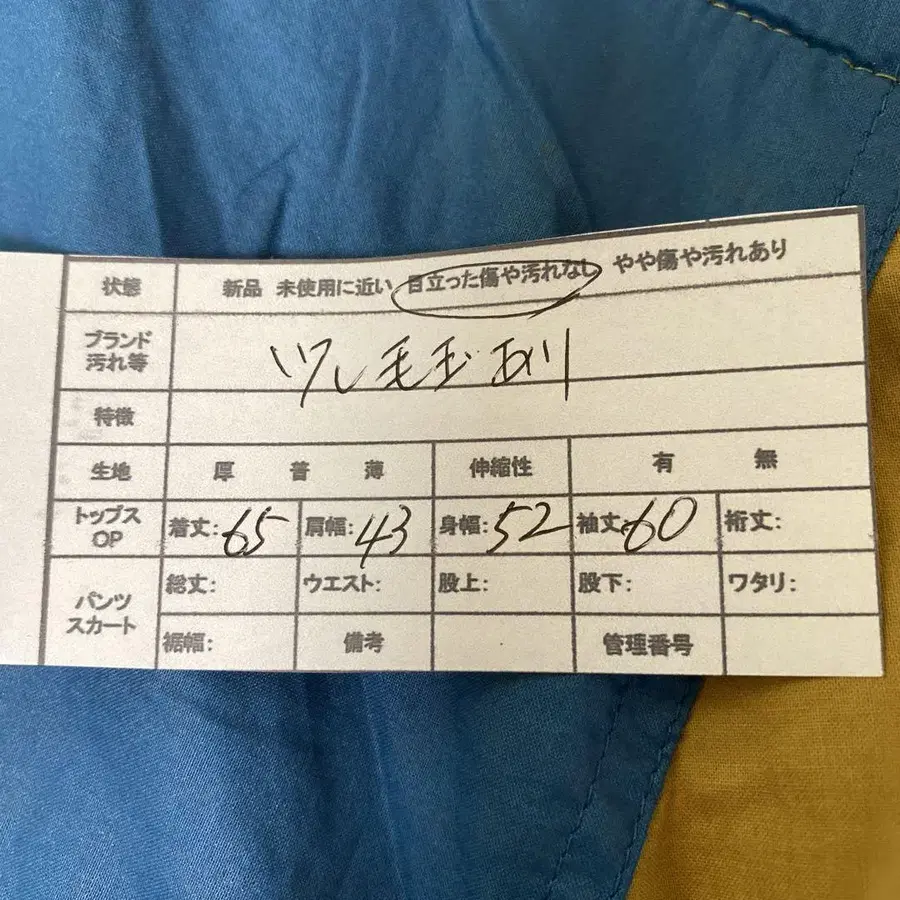 状態 新品 未使用に近い 目立った傷や汚れなし やや傷や汚れあり
ブランド
汚れ等
少し毛玉あり
特徴
生地 厚 普 薄 伸縮性 有 無
トップス
OP
着丈:65 肩幅:43 身幅:52 袖丈:60 裄丈:
パンツ
スカート
総丈: ウエスト: 股上: 股下: ワタリ:
裾幅: 備考 管理番号